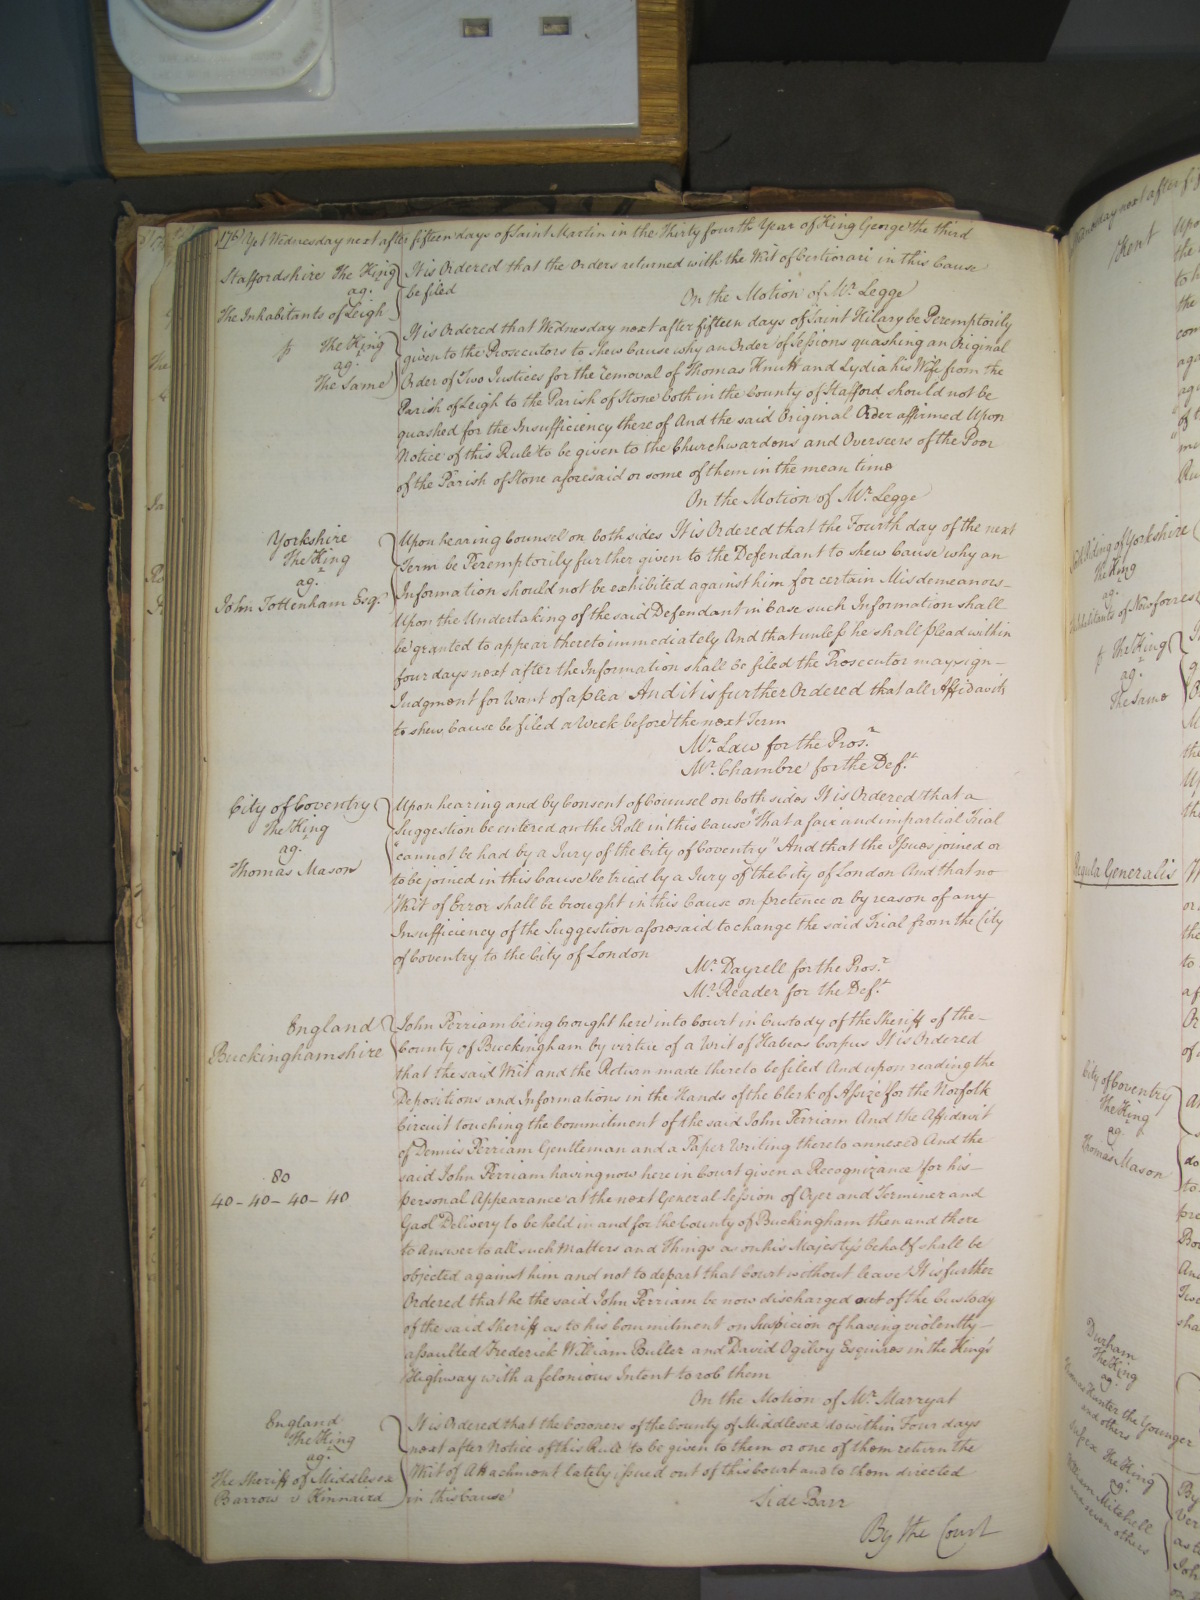 176 Yet Wednesday next after fifteen days of Saint Martin in the Thirty fourth Year of King George the third
Staffordshire The King
ag.t
The Inhabitants of Leigh
It is Ordered that the Orders returned with the Writ of Certiorari in this Cause
be filed
On the Motion of Mr. Legge
The King
ag.t
The Same
It is Ordered that Wednesday next after fifteen days of Saint Hilary be Peremptorily
given to the Prosecutors to shew Cause why an Order of Sessions quashing an Original
Order of Two Justices for the removal of Thomas Knutt and Lydia his Wife from the
Parish of Leigh to the Parish of Stone both in the County of Stafford should not be
quashed for the Insufficiency thereof And the said Original Order affirmed Upon
Notice of this Rule to be given to the Churchwardens and Overseers of the Poor
of the Parish of Stone aforesaid or some of them in the mean time
On the Motion of Mr. Legge
Yorkshire
The King
ag.t
John Tottenham Esq.r
Upon hearing Counsel on both sides It is Ordered that the Fourth day of the next
Term be Peremptorily further given to the Defendant to shew Cause why an
Information should not be exhibited against him for certain Misdemeanors
Upon the Undertaking of the said Defendant in Case such Information shall
be granted to appear thereto immediately And that unless he shall plead within
four days next after the Information shall be filed the Prosecutor may sign
Judgment for Want of a plea And it is further Ordered that all Affidavits
to shew Cause be filed a Week before the next Term
Mr. Law for the Pros.r
Mr. Chambre for the Def.t
City of Coventry
The King
ag.t
Thomas Mason
Upon hearing and by Consent of Counsel on both sides It is Ordered that a
Suggestion be entered on the Roll in this Cause "That a fair and impartial Trial
"cannot be had by a Jury of the City of Coventry" And that the Issues joined or
to be joined in this Cause be tried by a Jury of the City of London And that no
Writ of Error shall be brought in this Cause on pretence or by reason of any
Insufficiency of the Suggestion aforesaid to change the said Trial from the City
of Coventry to the City of London
Mr. Dayrell for the Pros.r
Mr. Reader for the Def.t
England
Buckinghamshire
John Perriam being brought here into Court in Custody of the Sheriff of the
County of Buckingham by virtue of a Writ of Habeas Corpus It is Ordered
that the said Writ and the Return made thereto be filed And upon reading the
Depositions and Informations in the Hands of the Clerk of Assize for the Norfolk
Circuit touching the Commitment of the said John Perriam And the Affidavit
of Dennis Perriam Gentleman and a Paper Writing thereto annexed And the
said John Perriam having now here in Court given a Recognizance for his
80
40 - 40 - 40 - 40
personal Appearance at the next General Session of Oyer and Terminer and
Gaol Delivery to be held in and for the County of Buckingham then and there
to Answer to all such Matters and Things as on his Majesty's behalf shall be
objected against him and not to depart that Court without leave It is further
Ordered that he the said John Perriam be now discharged out of the Custody
of the said Sheriff as to his Commitment on Suspicion of having violently
assaulted Frederick William Buller and David Ogilvy Esquires in the King's
Highway with a felonious Intent to rob them
On the Motion of Mr. Marryat
England
The King
ag.t
The Sheriff of Middlesex
Barrow v Kinnaird
It is Ordered that the Coroners of the County of Middlesex do within Four days
next after Notice of this Rule to be given to them or one of them return the
Writ of Attachment lately issued out of this Court and to them directed
in this Cause
Side Barr
By the Court
Kent
Riding of Yorkshire
The King
ag.t
Inhabitants of Newforrest
The King
ag.t
The Same
Regula Generalis
City of Coventry
The King
ag.t
Thomas Mason
Durham
The King
ag.t
Thomas Hunter the Younger
and others
Sussex The King
ag.t
William Mitchell
and seven others